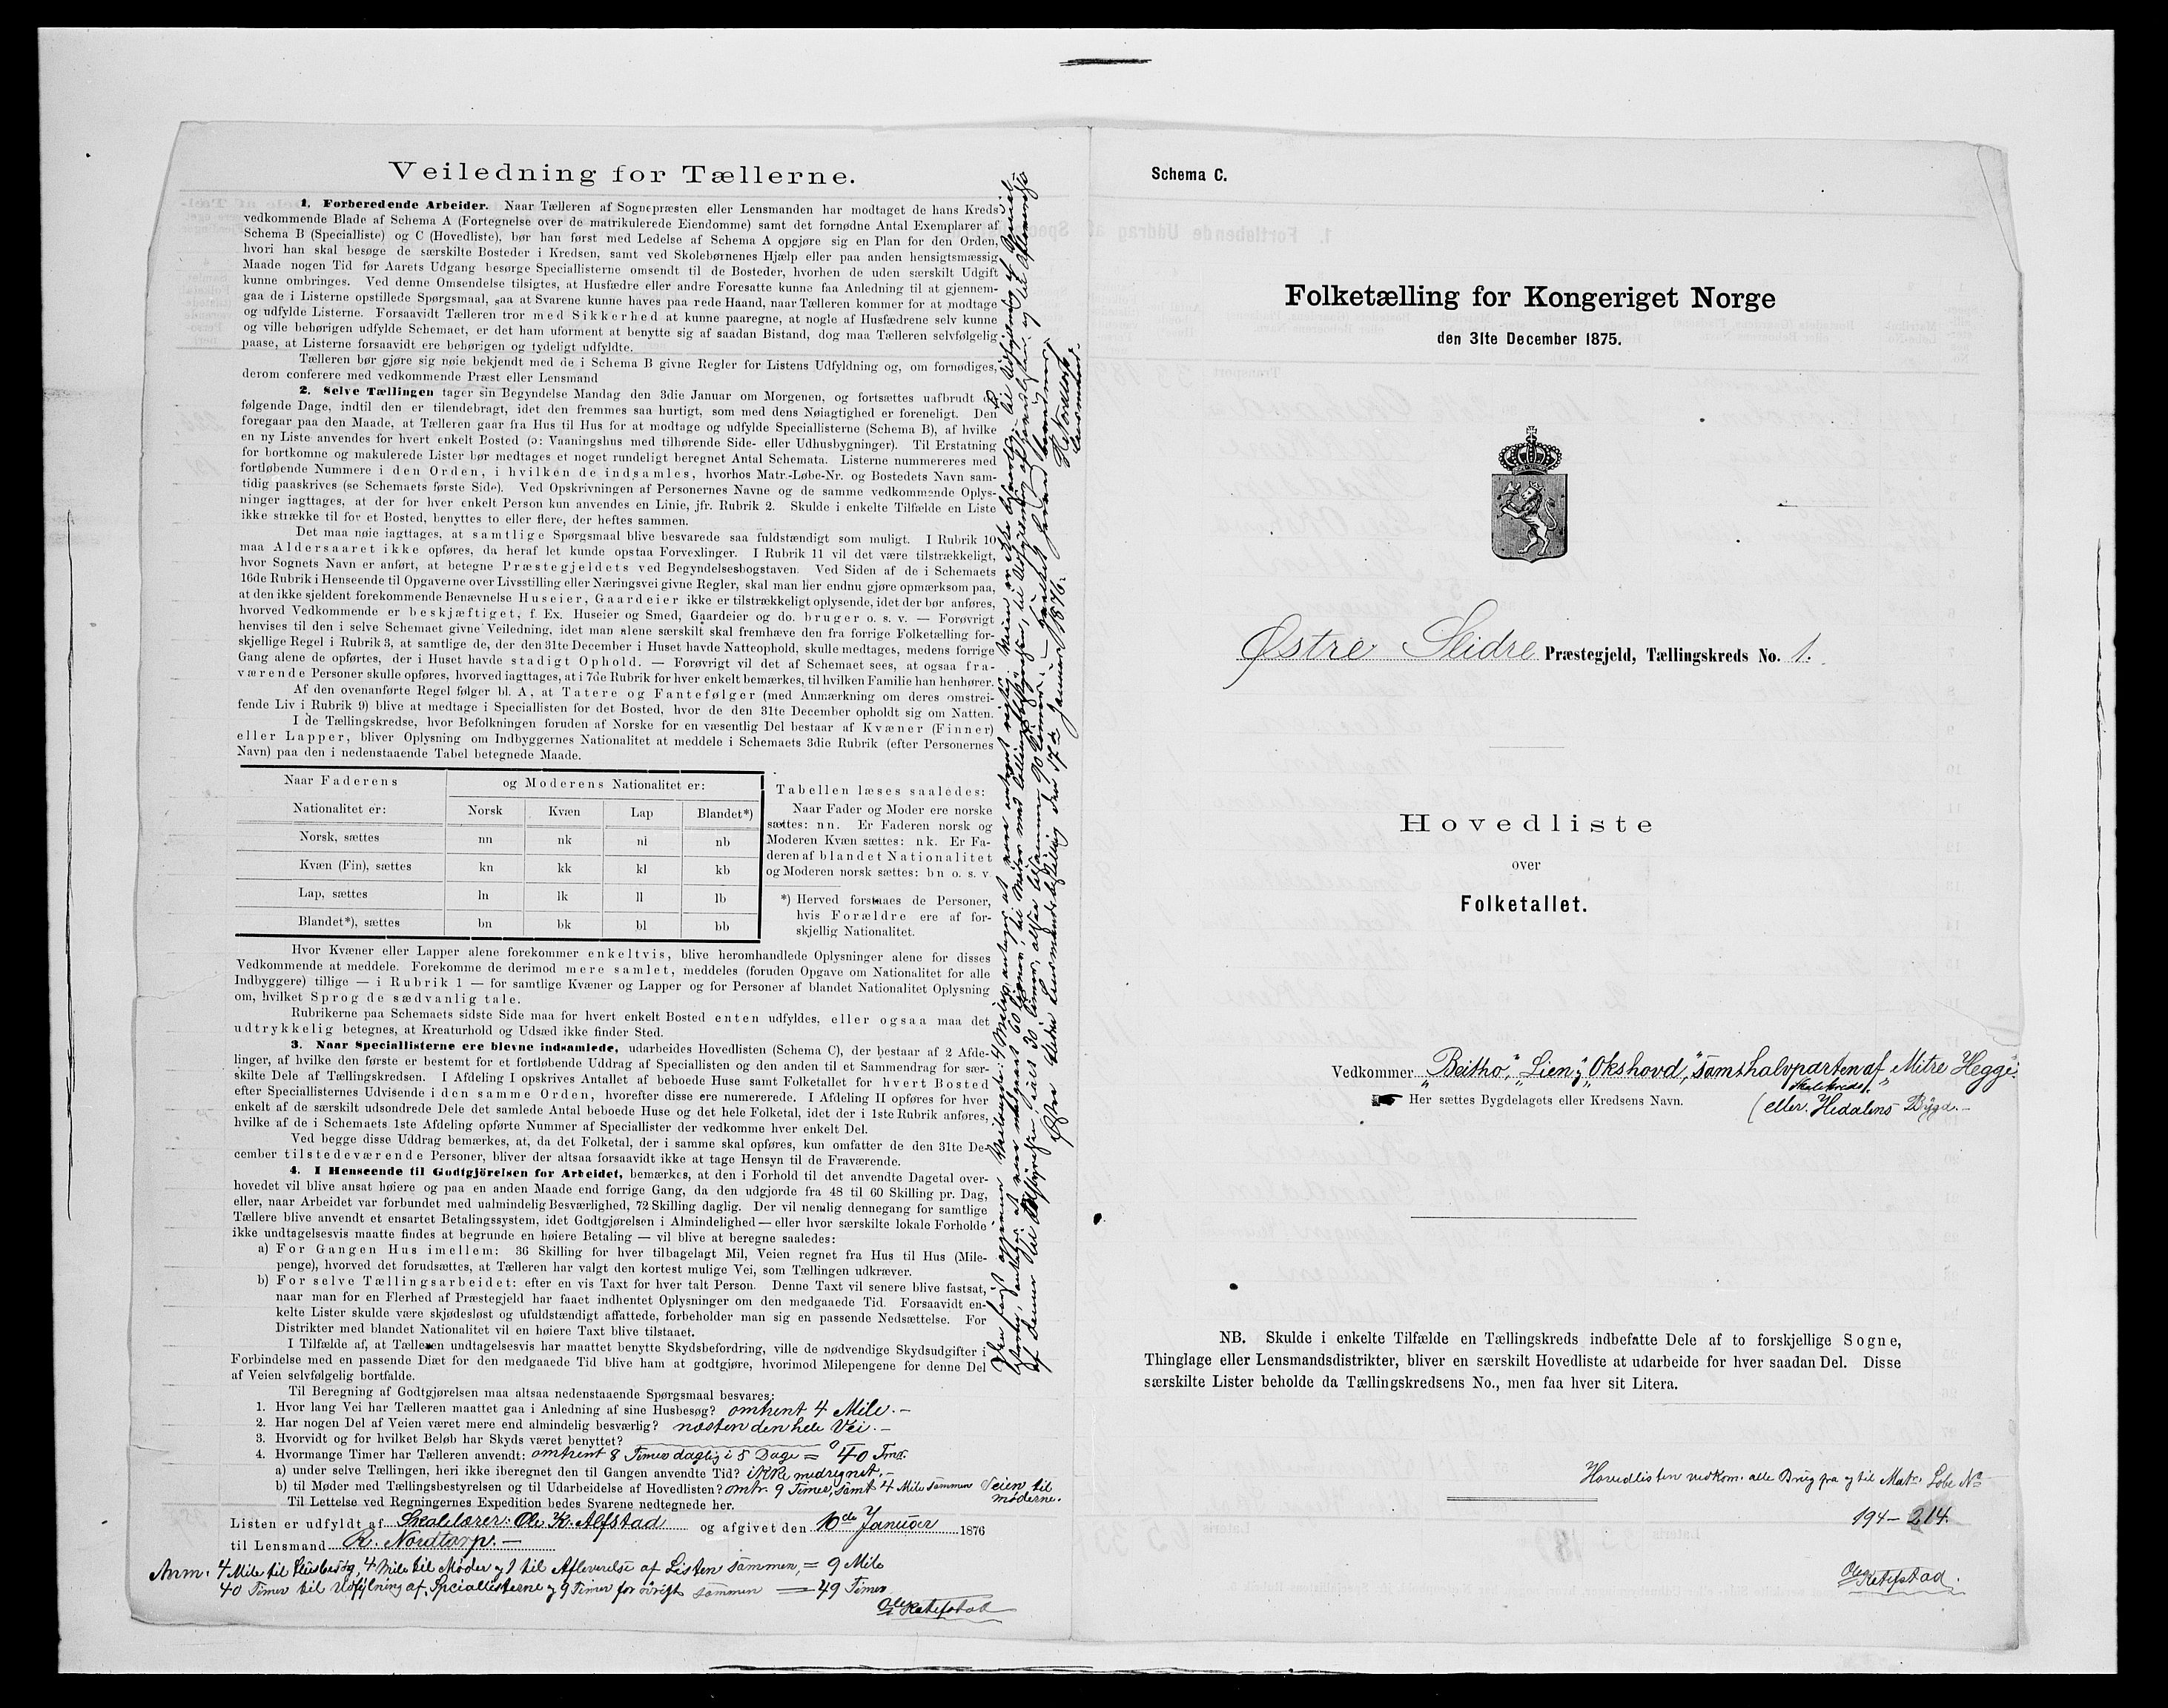 Veiledning for Tællerne.
1. Forberedende Arbeider. Naar Tælleren af Sognepræsten eller Lensmanden har modtaget de hans Kreds
vedkommende Blade af Schema A (Fortegnelse over de matrikulerede Eiendomme) samt det fornødne Antal Exemplarer af
Schema B (Specialliste) og C (Hovedliste), bør han først med Ledelse af Schema A opgjøre sig en Plan for den Orden,
hvori han skal besøge de særskilte Bosteder i Kredsen, samt ved Skolebørnenes Hjælp eller paa anden hensigtsmæssig
Maade nogen Tid før Aarets Udgang besørge Speciallisterne omsendt til de Bosteder, hvorhen de uden særskilt Udgift
kunne ombringes. Ved denne Omsendelse tilsigtes, at Husfædre eller andre Foresatte kunne faa Anledning til at gjennem-
gaa de i Listerne opstillede Spørgsmaal, saa at Svarene kunne haves paa rede Haand, naar Tælleren kommer for at modtage
og udfylde Listerne. Forsaavidt Tælleren tror med Sikkerhed at kunne paaregne, at nogle af Husfædrene selv kunne
og ville behørigen udfylde Schemaet, er det ham uforment at benytte sig af saadan Bistand, dog maa Tælleren selvfølgelig
paase, at Listerne forsaavidt ere behørigen og tydeligt udfyldte.
Tælleren bør gjøre sig nøie bekjendt med de i Schema B givne Regler for Listens Udfyldning og, om fornødiges,
derom conferere med vedkommende Præst eller Lensmand
2. Selve Tællingen tager sin Begyndelse Mandag den 3die Januar om Morgenen, og fortsættes uafbrudt de
følgende Dage, indtil den er tilendebragt, idet den fremmes saa hurtigt, som med dens Nøiagtighed er foreneligt. Den
foregaar paa den Maade, at Tælleren gaar fra Hus til Hus for at modtage og udfylde Speciallisterne (Schema B), af hvilke
en ny Liste anvendes for hvert enkelt Bosted (ɔ: Vaaningshus med tilhørende Side- eller Udhusbygninger). Til Erstatning
for bortkomne og makulerede Lister bør medtages et noget rundeligt beregnet Antal Schemata. Listerne nummereres med
fortløbende Nummere i den Orden, i hvilken de indsamles, hvorhos Matr.-Løbe-Nr. og Bostedets Navn sam-
tidig paaskrives (se Schemaets første Side). Ved Opskrivningen af Personernes Navne og de samme vedkommende Oplys-
ninger iagttages, at der for hver enkelt Person kun anvendes en Linie, jfr. Rubrik 2. Skulde i enkelte Tilfælde en Liste
ikke strække til for et Bosted, benyttes to eller flere, der heftes sammen.
Det maa nøie iagttages, at samtlige Spørgsmaal blive besvarede saa fuldstændigt som muligt. I Rubrik 10
maa Aldersaaret ikke opføres, da heraf let kunde opstaa Forvexlinger. I Rubrik 11 vil det være tilstrækkeligt,
hvor Sognets Navn er anført, at betegne Præstegjeldets ved Begyndelsesbogstaven. Ved Siden af de i Schemaets
16de Rubrik i Henseende til Opgaverne over Livsstilling eller Næringsvei givne Regler, skal man her endnu gjøre opmærksom paa,
at den ikke sjeldent forekommende Benævnelse Huseier, Gaardeier ikke er tilstrækkeligt oplysende, idet der bør anføres,
hvorved Vedkommende er beskjæftiget, f. Ex. Huseier og Smed, Gaardeier og do. bruger o. s. v. — Forøvrigt
henvises til den i selve Schemaet givne Veiledning, idet man alene særskilt skal fremhæve den fra forrige Folketælling for-
skjellige Regel i Rubrik 3, at samtlige de, der den 31te December i Huset havde Natteophold, skulle medtages, medens forrige
Gang alene de opførtes, der i Huset havde stadigt Ophold. — Forøvrigt vil det af Schemaet sees, at ogsaa fra-
værende Personer skulle opføres, hvorved iagttages, at i 7de Rubrik for hver enkelt bemærkes, til hvilken Familie han henhører.
Af den ovenanførte Regel følger bl. A, at Tatere og Fantefølger (med Anmærkning om deres omstrei-
fende Liv i Rubrik 9) blive at medtage i Speciallisten for det Bosted, hvor de den 31te December opholdt sig om Natten.
I de Tællingskredse, hvor Befolkningen foruden af Norske for en væsentlig Del bestaar af Kvæner (Finner)
eller Lapper, bliver Oplysning om Indbyggernes Nationalitet at meddele i Schemaets 3die Rubrik (efter Personernes
Navn) paa den i nedenstaaende Tabel betegnede Maade.
Naar Faderens
Nationalitet er:
og Moderens Nationalitet er:
Norsk Kvæn Lap Blandet*)
Norsk, sættes nn nk nl nb
Kvæn (Fin), sættes kn kk kl kb
Lap, sættes ln lk ll lb
Blandet*), sættes bn bk bl bb
Tabellen læses saaledes:
Naar Fader og Moder ere norske
sættes: nn. Er Faderen norsk og
Moderen Kvæn sættes: nk. Er Fa-
deren af blandet Nationalitet
og Moderen norsk sættes: bn o. s. v.
*) Herved forstaaes de Personer,
hvis Forældre ere af for-
skjellig Nationalitet.
Hvor Kvæner eller Lapper alene forekommer enkeltvis, blive heromhandlede Oplysninger alene for disses
Vedkommende at meddele. Forekomme de derimod mere samlet, meddeles (foruden Opgave om Nationalitet for alle
Indbyggere) tillige — i Rubrik 1 — for samtlige Kvæner og Lapper og for Personer af blandet Nationalitet Oplysning
om, hvilket Sprog de sædvanlig tale.
Rubrikerne paa Schemaets sidste Side maa for hvert enkelt Bosted enten udfyldes, eller ogsaa maa det
udtrykkelig betegnes, at Kreaturhold og Udsæd ikke finder Sted.
3. Naar Speciallisterne ere blevne indsamlede, udarbeides Hovedlisten (Schema C), der bestaar af 2 Afde-
linger, af hvilke den første er bestemt for et fortløbende Uddrag af Speciallisten og den anden til et Sammendrag for sær-
skilte Dele af Tællingskredsen. I Afdeling I opskrives Antallet af beboede Huse samt Folketallet for hvert Bosted
efter Speciallisternes Udvisende i den samme Orden, hvorefter disse ere numererede. I Afdeling II opføres for hver
enkelt af de særskilt udsondrede Dele det samlede Antal beboede Huse og det hele Folketal, idet der i 1ste Rubrik anføres,
hvilke af de i Schemaets 1ste Afdeling opførte Nummer af Speciallister der vedkomme hver enkelt Del.
Ved begge disse Uddrag bemærkes, at, da det Folketal, der i samme skal opføres, kun omfatter de den 31te De-
cember tilstedeværende Personer, bliver der altsaa forsaavidt ikke at tage Hensyn til de Fraværende.
4. I Henseende til Godtgjörelsen for Arbeidet, bemærkes, at den i Forhold til det anvendte Dagetal over-
hovedet vil blive ansat høiere og paa en anden Maade end forrige Gang, da den udgjorde fra 48 til 60 Skilling pr. Dag,
eller, naar Arbeidet var forbundet med ualmindelig Besværlighed, 72 Skilling daglig. Der vil nemlig dennegang for samtlige
Tællere blive anvendt et ensartet Betalingssystem, idet Godtgjørelsen i Almindelighed — eller hvor særskilte lokale Forholde
ikke undtagelsesvis maatte findes at begrunde en høiere Betaling — vil blive at beregne saaledes:
a) For Gangen Hus imellem: 36 Skilling for hver tilbagelagt Mil, Veien regnet fra Hus til Hus (Mile-
penge), hvorved det forudsættes, at Tælleren har valgt den kortest mulige Vei, som Tællingen udkræver.
b) For selve Tællingsarbeidet: efter en vis Taxt for hver talt Person. Denne Taxt vil senere blive fastsat,
naar man for en Flerhed af Præstegjeld har faaet indhentet Oplysninger om den medgaaede Tid. Forsaavidt en-
kelte Lister skulde være skjødesløst og ufuldstændigt affattede, forbeholder man sig en passende Nedsættelse. For
Distrikter med blandet Nationalitet vil en høiere Taxt blive tilstaaet.
I Tilfælde af, at Tælleren undtagelsesvis har maattet benytte Skydsbefordring, ville de nødvendige Skydsudgifter i
Forbindelse med en passende Diæt for den medgaaede Tid blive ham at godtgjøre, hvorimod Milepengene for denne Del
af Veien selvfølgelig bortfalde.
Til Beregning af Godtgjørelsen maa altsaa nedenstaaende Spørgsmaal besvares:
1. Hvor lang Vei har Tælleren maattet gaa i Anledning af sine Husbesøg? omtrent 4 Mile. —
2. Har nogen Del af Veien været mere end almindelig besværlig? næsten den hele Vei. —
3. Hvorvidt og for hvilket Beløb har Skyds været benyttet?
4. Hvormange Timer har Tælleren anvendt: omtrent 8 Timer daglig i 5 Dage = 40 Tmr.
a) under selve Tællingen, heri ikke iberegnet den til Gangen anvendte Tid? ikke medregnet. —
b) til Møder med Tællingsbestyrelsen og til Udarbeidelse af Hovedlisten? omtr. 9 Timer, samt 4 Mile sammen Veien til
møderne.
Til Lettelse ved Regningernes Expedition bedes Svarene nedtegnede her.
Listen er udfyldt af Skolelærer: Ole K. Alfstad og afgivet den 16de Januar 1876
til Lensmand R. Nordtorp. —
Anm: 4 Mile til Husbesøg, 4 Mile til Møder og 1 til Afleverelse af Listen sammen, = 9 Mile
40 Timer til Udfylning af Speciallisterne og 9 Timer for øvrigt sammen = 49 Timer
Schema C.
Folketælling for Kongeriget Norge
den 31te December 1875.
Østre Slidre Præstegjeld, Tællingskreds No. 1.
Hovedliste
over
Folketallet.
Vedkommer „Beitho", „Lien", og „Okshovd", samt halvparten af „Mitre Hegge"
Skolekreds.
Her sættes Bygdelagets eller Kredsens Navn. (eller Hedalens Bygd. —
NB. Skulde i enkelte Tilfælde en Tællingskreds indbefatte Dele af to forskjellige Sogne,
Thinglage eller Lensmandsdistrikter, bliver en særskilt Hovedliste at udarbeide for hver saadan Del. Disse
særskilte Lister beholde da Tællingskredsens No., men faa hver sit Litera.
Hovedlisten vedkom. alle Brug fra og til Matr. Løbe No
194 — 214.